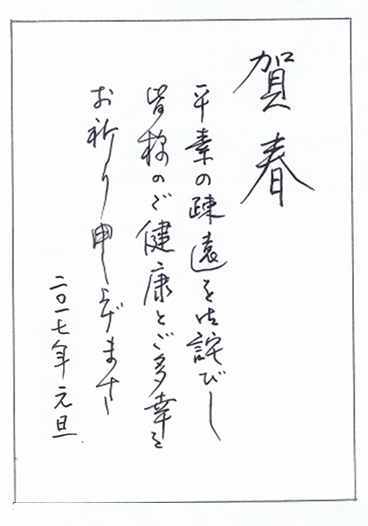 賀春
平素の疎遠を お詫びし
皆様のご健康とご多幸を
お祈り申し上げます
二〇一七年 元旦